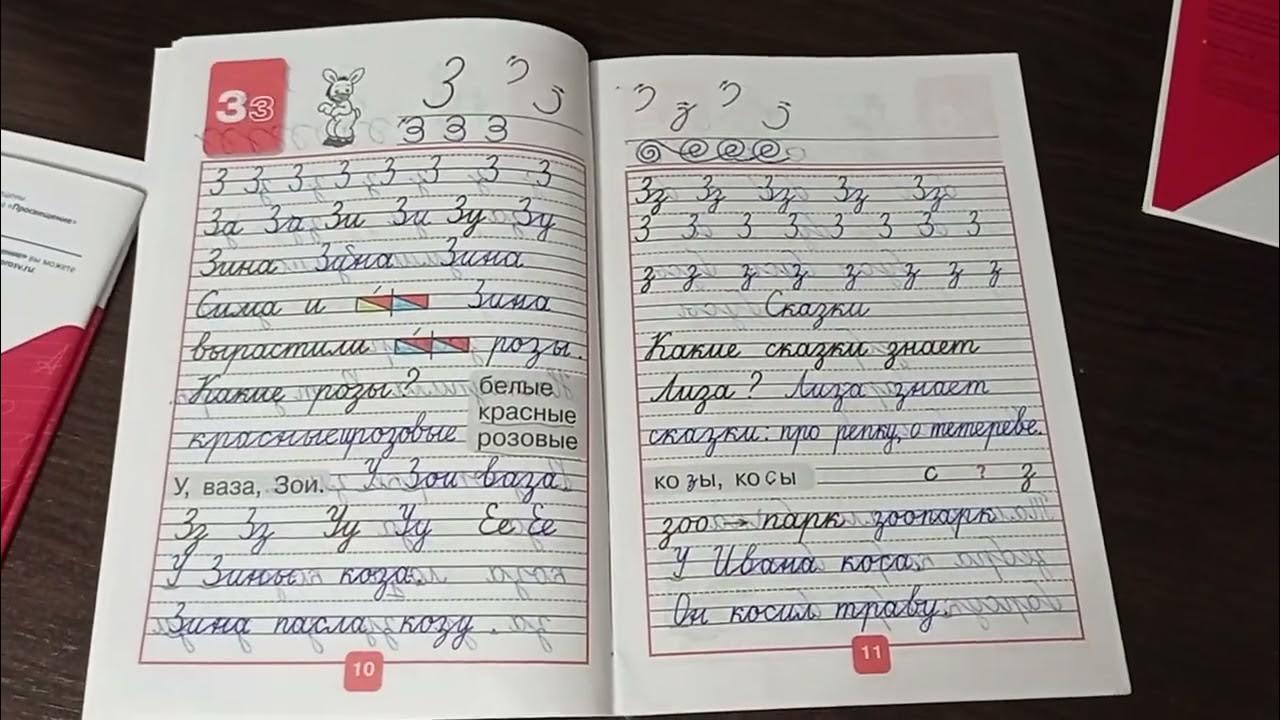 Зз
З З З
з з з
З З З З З З З З
За За Зи Зи Зу Зу
Зина Зина Зина
Сима и Зина
вырастили розы.
Какие розы?
белые
красные
розовые
красные розовые
У, ваза, Зои. У Зои ваза
Зз Зз Уу Уу Ее Ее
У Зины коза.
Зина пасла козу.
10
З з З з
Зз Зз Зз Зз Зз
З З З З З З З З
з з з з з з з з
Сказки
Какие сказки знает
Лиза? Лиза знает
сказки: про репку, о тетереве.
козы, косы с ? з
зоо → парк зоопарк
У Ивана коса.
Он косил траву.
11
«Просвещение»
вы можете